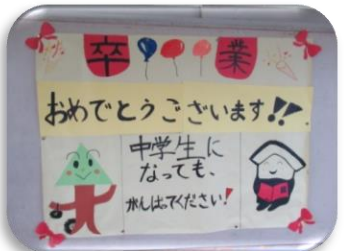 卒業
おめでとうございます!!
中学生に
なっても、
がんばってください!